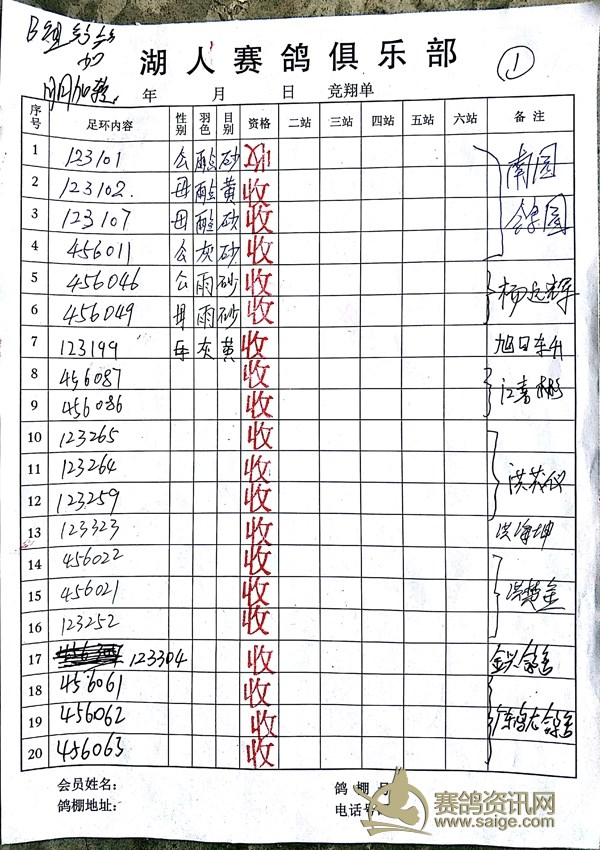 湖人赛鸽俱乐部
①
年 月 日 竞翔单
序号 足环内容 性别 羽色 目别 资格 二站 三站 四站 五站 六站 备注
1 123101 公 砂
2 123102 母 黄 收
3 123107 母 砂 收
4 456011 公 灰 砂 收
南园
5 456046 公 雨 砂 收
6 456049 母 雨 砂 收
7 123199 母 灰 黄 收 旭日东升
8 456087 收
9 456086 收
10 123265 收
11 123264 收
12 123259 收
13 123323 收 洪海坤
14 456022 收
15 456021 收
16 123252 收
17 123304 收
18 456061 收
19 456062 收
20 456063 收
会员姓名: 鸽棚号
鸽棚地址: 电话号
赛鸽资讯网
www.saige.com